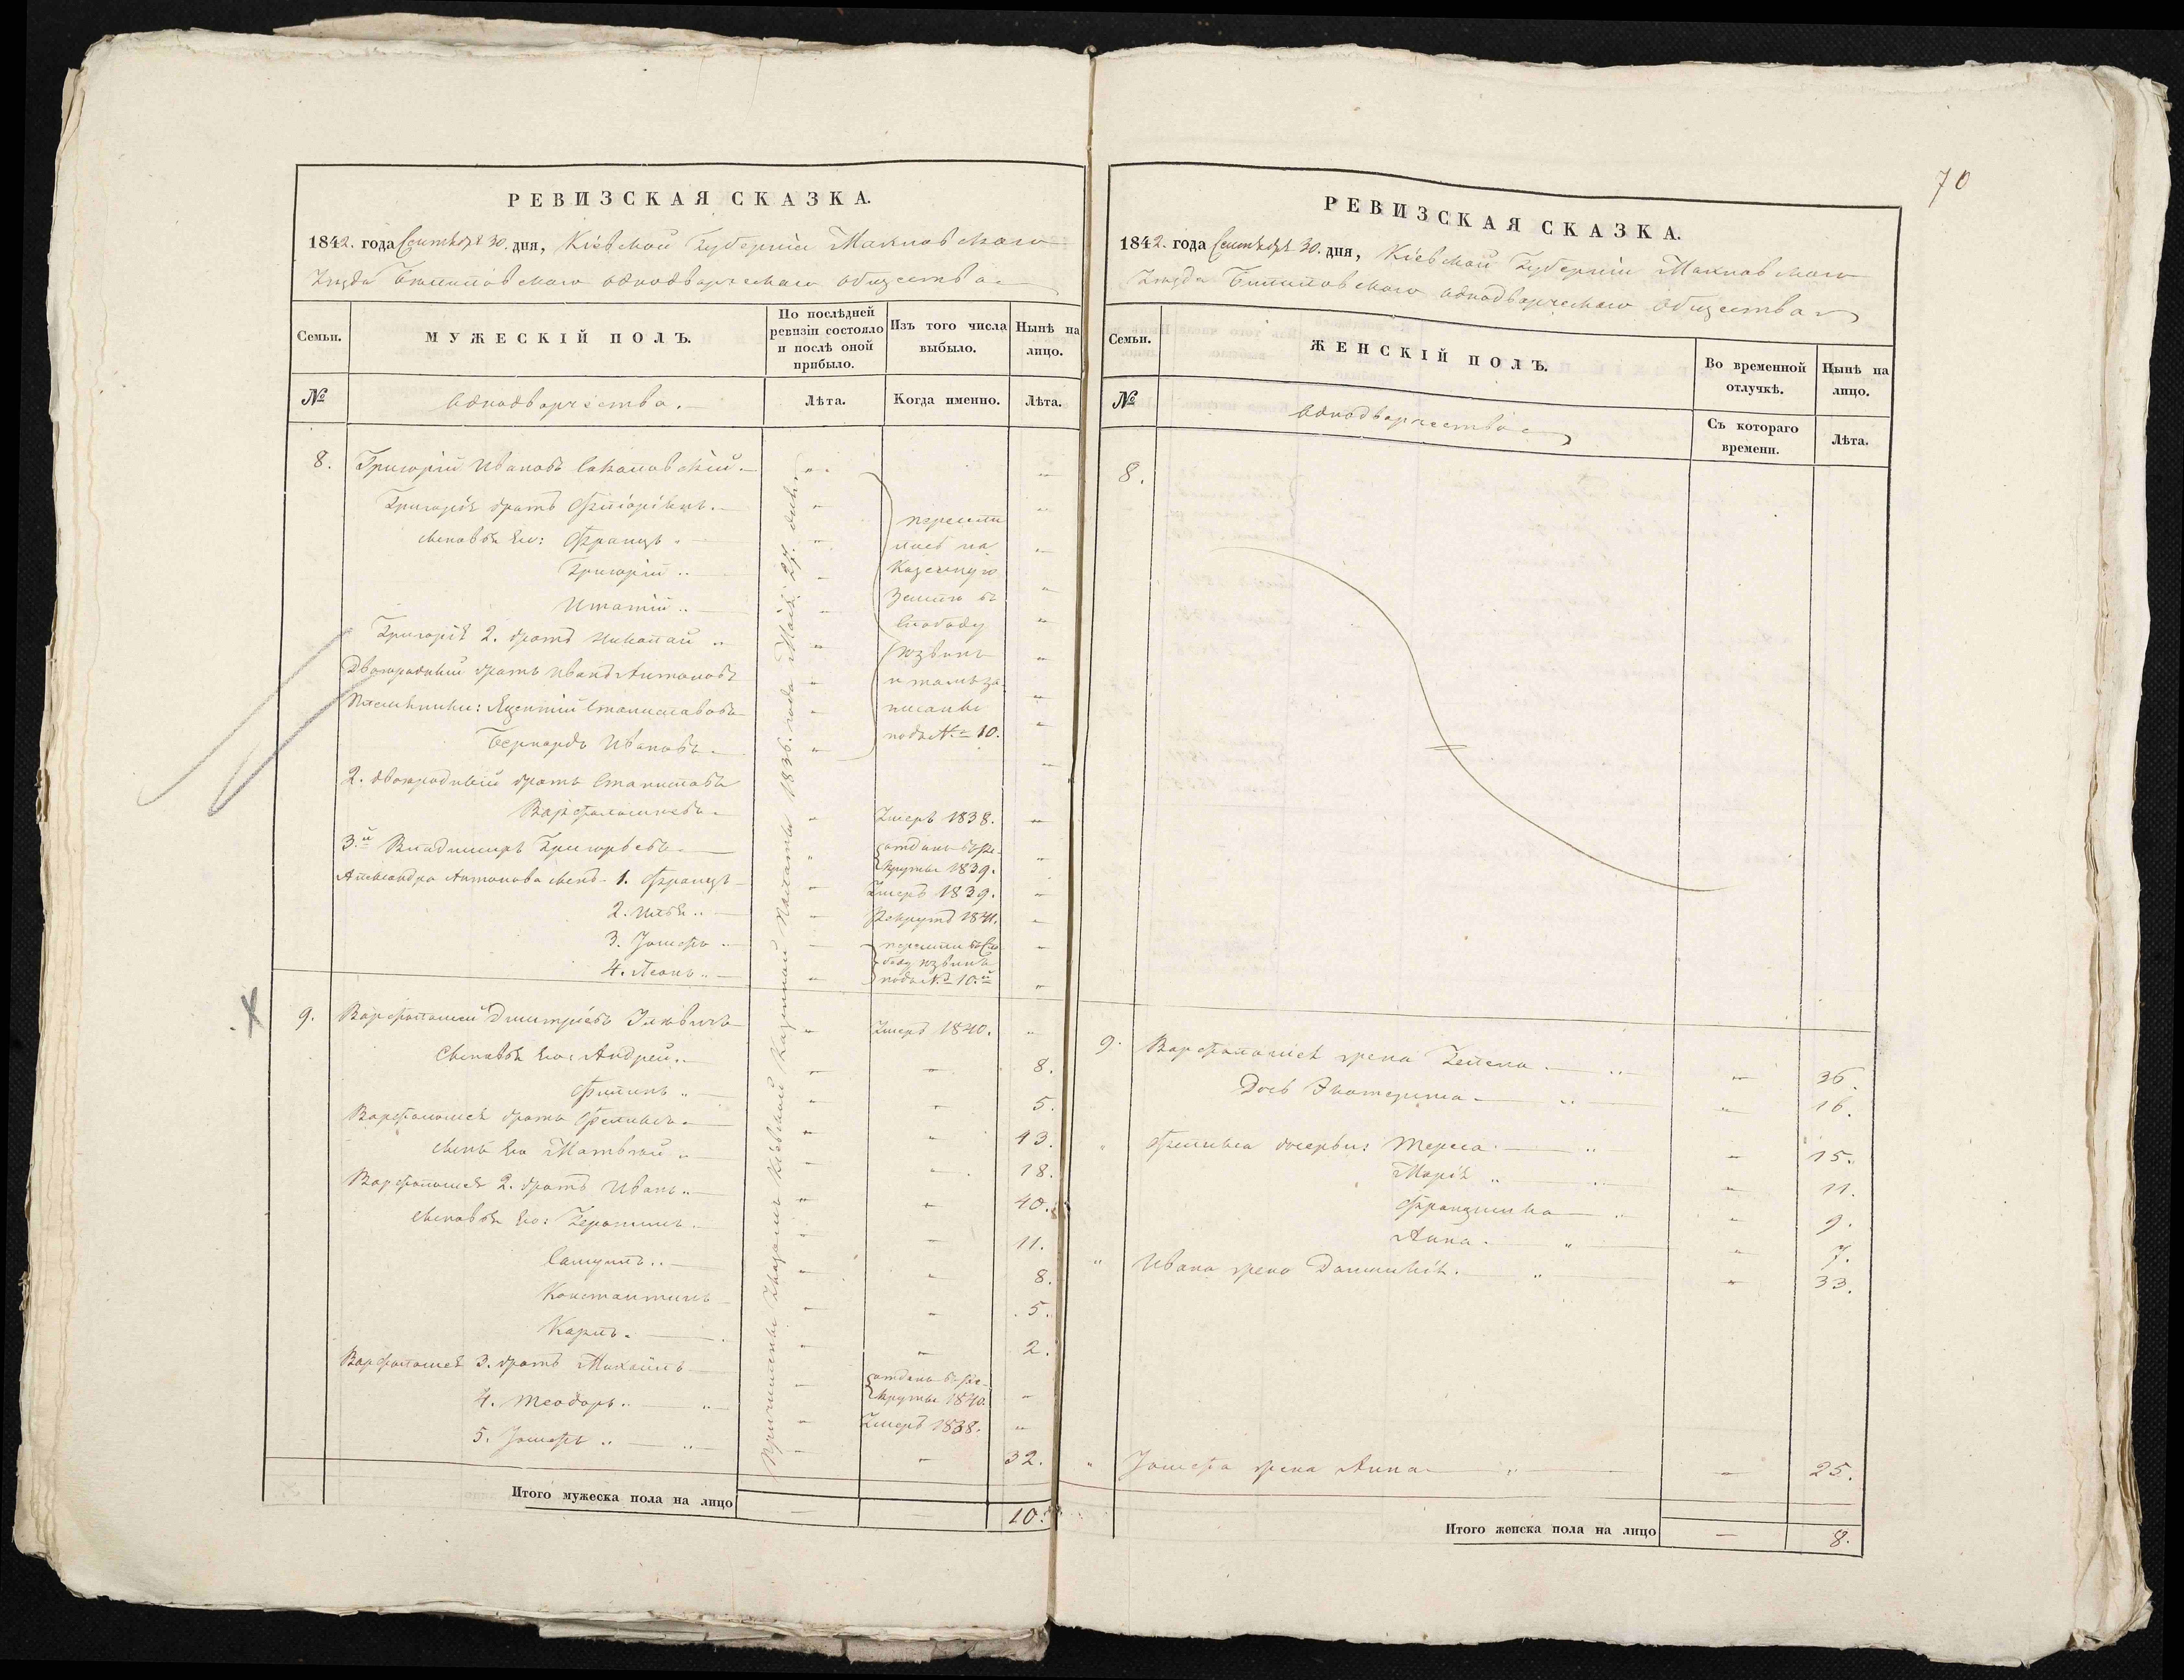 РЕВИЗСКАЯ СКАЗКА.
1842. года Сентября 30. дня, Кіевской Губерніи Махновскаго
Уѣзда Билиловскаго однодворческаго общества
Семьи.
МУЖЕСКІЙ ПОЛЪ.
По послѣдней ревизіи состояло и послѣ оной прибыло.
Изъ того числа выбыло.
Нынѣ на лицо.
№
Однодворчества.
Лѣта.
Когда именно.
Лѣта.
Причислены Указомъ Кіевской Казенной Палаты 1836. года Мая 27. дня
8. Григорій Ивановъ Соколовскій „ „
Григорія братъ Флоріянъ. „ „
сыновья Его: Францъ „ „
Григорій „ „
Игнатій „ „
Григорія 2. братъ Николай „ „
Двоюродный братъ Иванъ Антоновъ „ „
Племянники: Яцентій Станиславовъ „ „
Бернардъ Ивановъ „ „
перешли
на
Казенную
Землю въ
Слободу
Юзвинъ
и тамъ за
писаны
подъ №. 10.
2. двоюродный братъ Станиславъ
Варфоломеевъ „ Умеръ 1838. „
3.й Владимиръ Григорьевъ „ отданъ въ Ре-
круты 1839. „
Александра Антонова сынъ 1. Францъ „ Умеръ 1839. „
2. Яковъ „ Рекрутъ 1841. „
3. Іосифъ „ перешли въ Сло-
боду Юзвинъ „
4. Леонъ „ подъ №. 10.й „
9. Варфоломей Дмитріевъ „ Умеръ 1840. „
Сыновья Его: Андрей „ „ 8.
Филипъ „ „ 5.
Варфоломея братъ Феликсъ „ „ 43.
сынъ Его Матвѣй „ „ 18.
Варфоломея 2. братъ Иванъ „ „ 40.
сыновья Его: Геронимъ „ „ 11.
Самуилъ „ „ 8.
Константинъ „ „ 5.
Карлъ „ „ 2.
Варфоломея 3. братъ Михаилъ „ отданъ въ Ре-
круты 1840. „
4. Теодоръ „ Умеръ 1838. „
5. Іосифъ „ „ 32.
Итого мужеска пола на лицо — — 10.
70
РЕВИЗСКАЯ СКАЗКА.
1842. года Сентября 30. дня, Кіевской Губерніи Махновскаго
Уѣзда Билиловскаго однодворческаго общества
Семьи.
ЖЕНСКІЙ ПОЛЪ.
Во временной отлучкѣ.
Нынѣ на лицо.
№
Однодворчества
Съ котораго времени.
Лѣта.
8.
9. Варфоломея жена Елена „ 36.
Дочь Екатерина „ 16.
„ Феликса дочери: Тереса „ 15.
Марія „ 11.
Францишка „ 9.
Анна „ 7.
„ Ивана жена Доминикія „ 33.
„ Іосифа жена Анна „ 25.
Итого женска пола на лицо — 8.